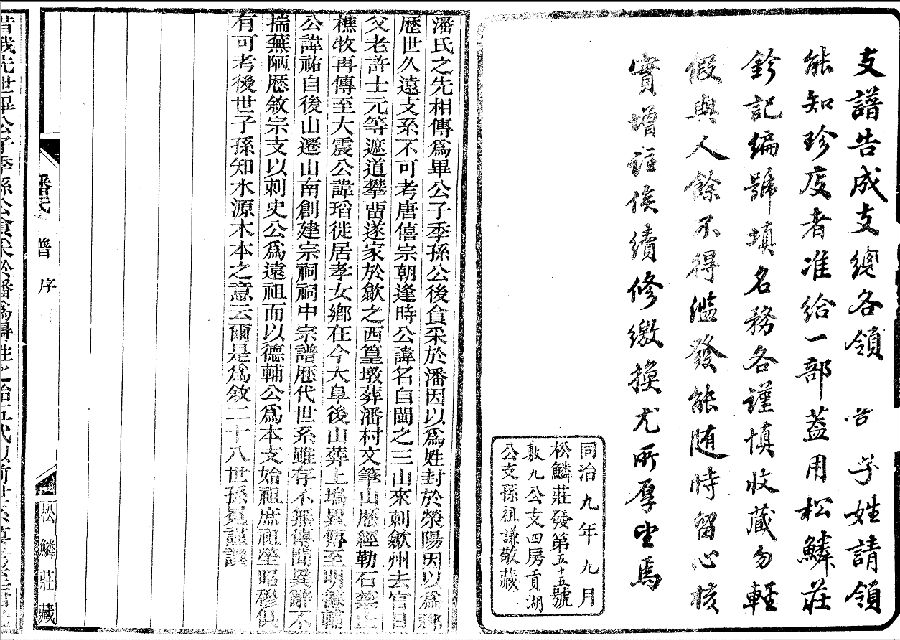 支譜告成支總各領 合 學姓請領
能知珍度者准給一部蓋用松鱗莊
鈐記編號填名務各謹慎收藏勿輕
假與人餘不得濫發能隨時留心核
實增註俟續修繳換尤所厚望焉
同治九年九月
松鱗莊發第五十五號
敷九公支四房貢湖
公支孫祖謙敬藏
潘氏之先相傳為畢公子季孫公後食采於潘因以為姓封於滎陽因以為
歷世久遠支系不可考唐僖宗朝逢時公諱名自閩之三山來刺歙州去官日
父老許士元等遮道攀留遂家於歙之西篁墩葬潘村文筆山歷經勒石禁止
樵牧再傳至大震公諱瑫徙居孝女鄉在今大阜後山葬上瑞異傳至明
公諱祐自後山遷山南創建宗祠祠中宗譜歷代世系雖存不無傳聞異辭不
揣蕪陋歷敘宗支以刺史公為遠祖而以德輔公為本支始祖庶祖塋昭穆俱
有可考後世子孫知水源木本之意云爾是為敘二十八世孫
潘氏 譜 序
松鱗莊藏
昔我先世畢公子季孫公食采於潘為得姓之始五代以前世系